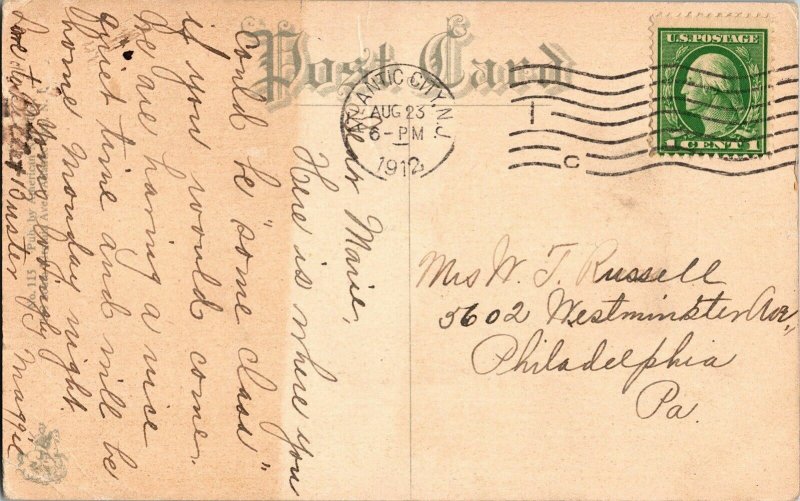 Post Card
ATLANTIC CITY, N.J.
AUG 23
6-PM
1912
U.S. POSTAGE
1 CENT 1
Dear Marie,
Here is where you
could be "some class"
if you would come.
We are having a nice
quiet time and will be
home Monday night.
Yours Maggie
Love to Buster
Mrs W. T. Russell
5602 Westminster Ave,
Philadelphia
Pa.
No. 115 Pub. by